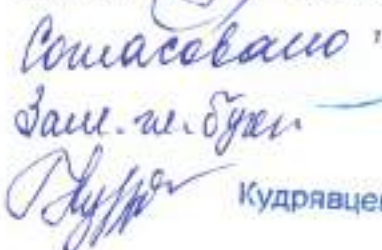 Согласовано
Зам. гл. бухг.
Кудрявцев